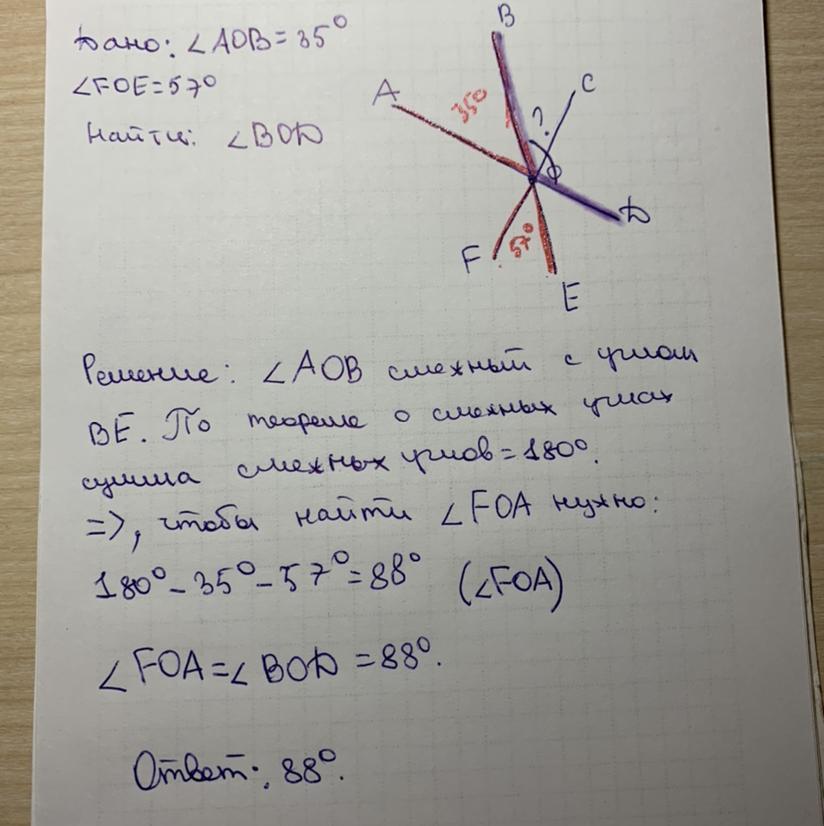 Дано: ∠AOB=35°
∠FOE=57°
Найти: ∠BOD
A
B
C
D
E
F
35°
?
57°
Решение: ∠AOB смежный с углом
BE. По теореме о смежных углах
сумма смежных углов=180°.
=>, чтобы найти ∠FOA нужно:
180°-35°-57°=88° (∠FOA)
∠FOA=∠BOD=88°.
Ответ: 88°.